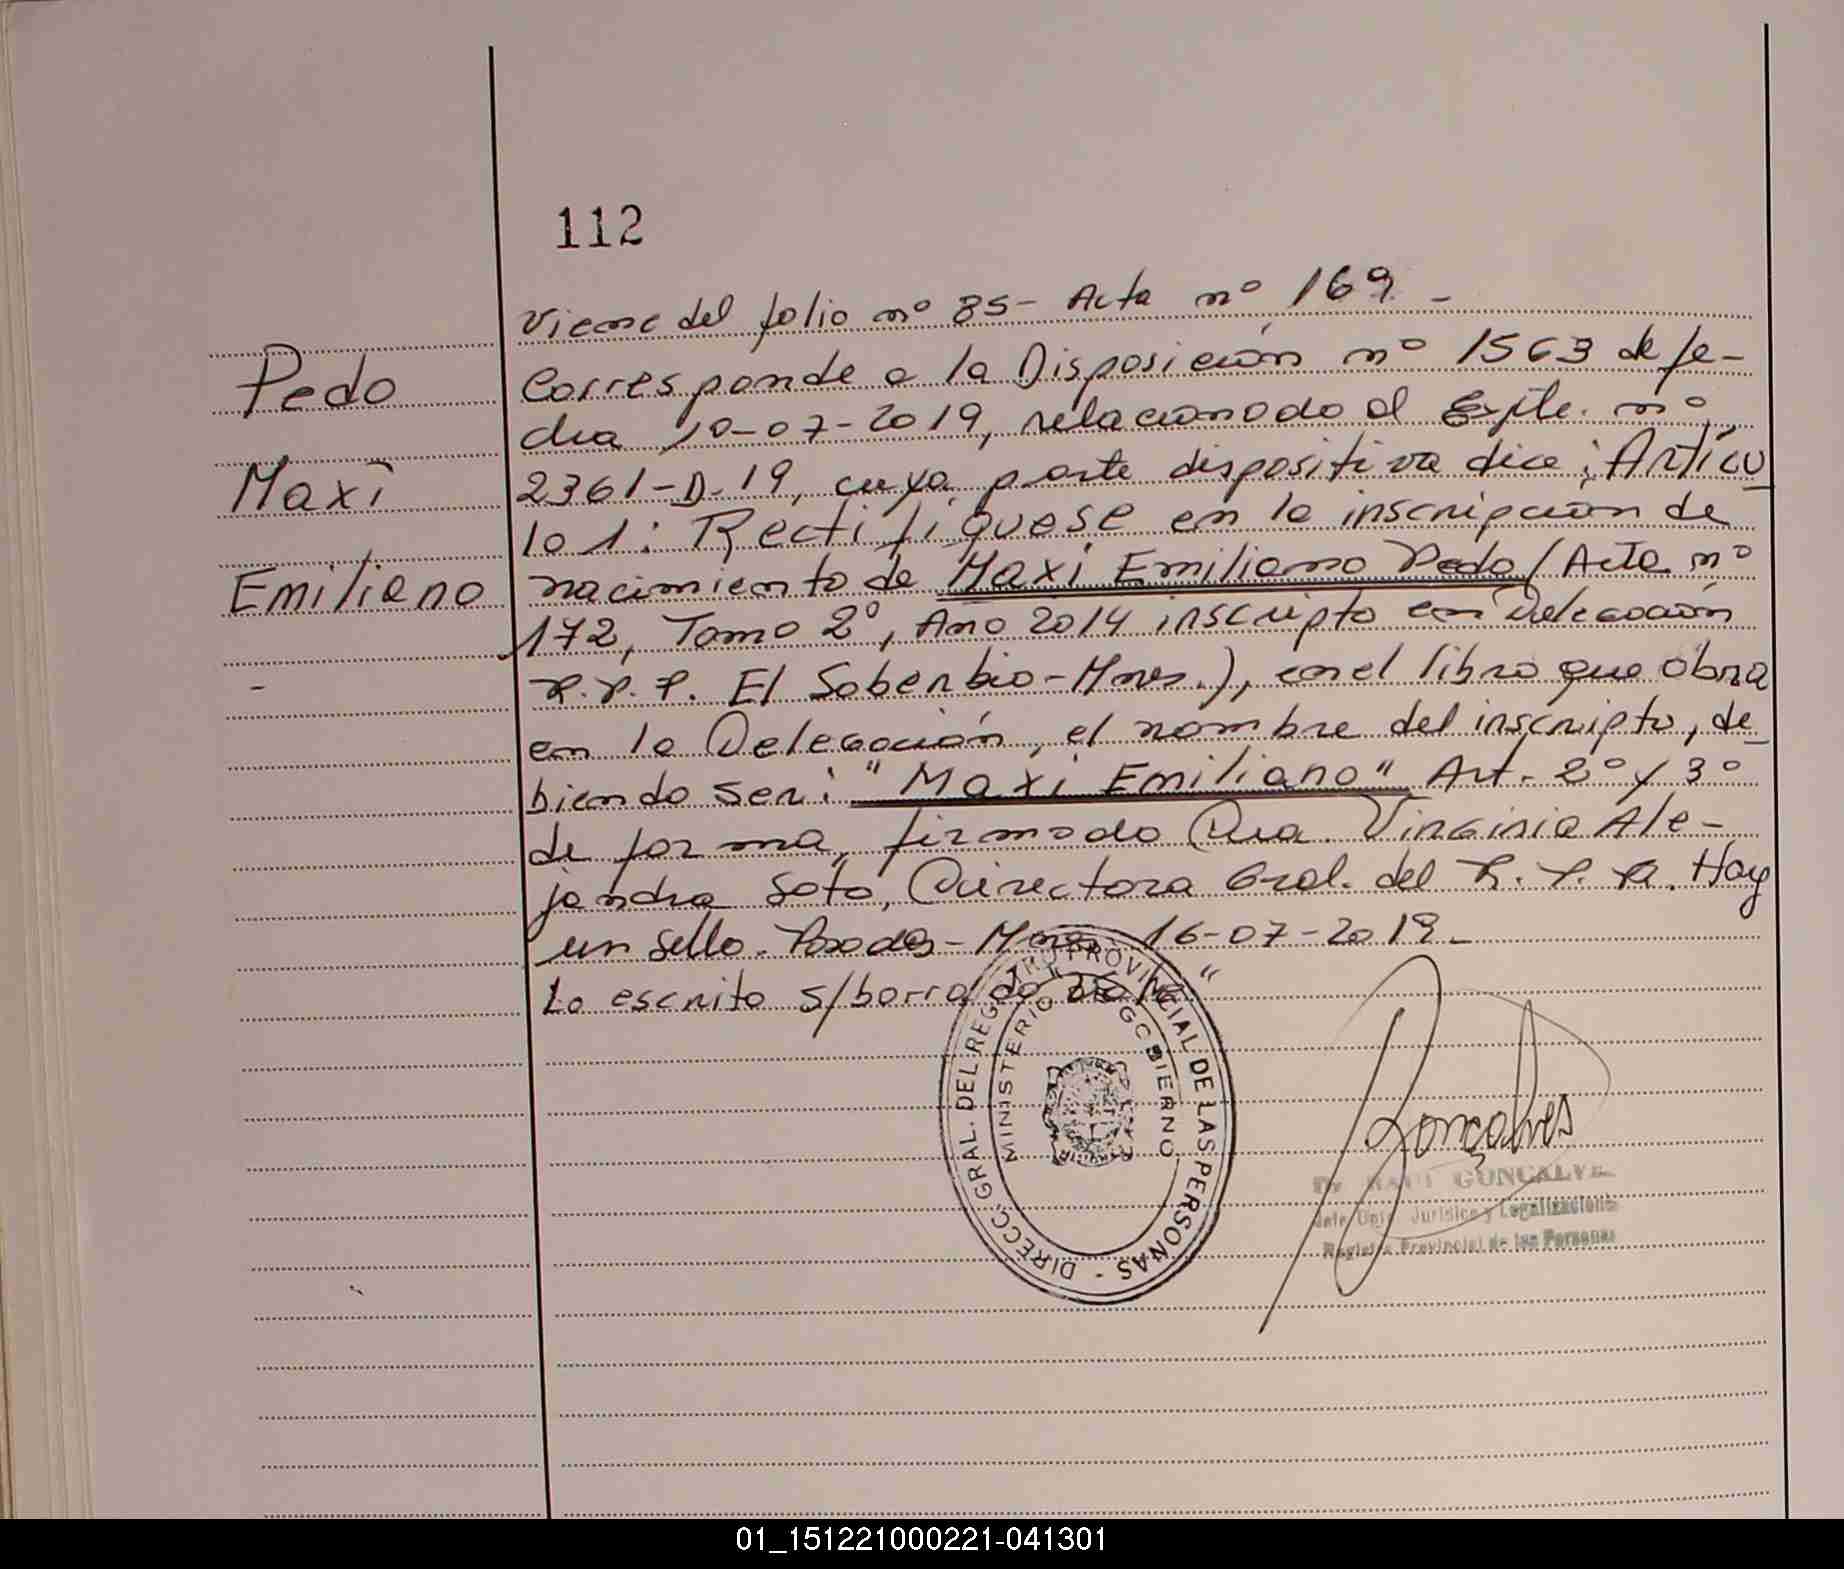 112
Viene del folio nº 85 - Acta nº 169 -
Corresponde a la Disposición nº 1563 de fe-
Pedo
cha 10-07-2019, relacionado al Expte. nº
2361-D-19, cuya parte dispositiva dice: Artícu
Maxi
lo 1: Rectifíquese en la inscripción de
nacimiento de Maxi Emiliano Pedo (Acta nº
Emiliano
172, Tomo 2º, Año 2014 inscripto en Delegación
R.P.P. El Soberbio-Mnes.), en el libro que obra
en la Delegación, el nombre del inscripto, de
biendo ser: "Maxi Emiliano" Art. 2º y 3º
de forma, firmado Dra. Virginia Ale-
jandra Soto, Directora Gral. del R. P. P. Hay
un sello. Posadas - Mnes, 16-07-2019 -
Lo escrito s/borrado
DIRECC. GRAL. DEL REGISTRO PROVINCIAL DE LAS PERSONAS -
MINISTERIO DE GOBIERNO
Gonçalves
GONCALVES
Jurídico y Legalizaciones
Registro Provincial de las Personas
01_151221000221-041301